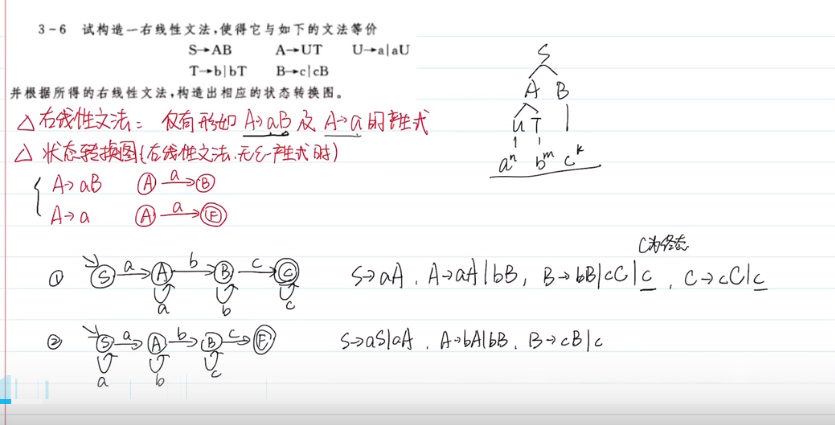 3-6 试构造一右线性文法,使得它与如下的文法等价
S→AB A→UT U→a|aU
T→b|bT B→c|cB
并根据所得的右线性文法,构造出相应的状态转换图。
△ 右线性文法: 仅有形如 A→aB 及 A→a 的产生式
△ 状态转换图(右线性文法.无ε产生式时)
A→aB A a B
A→a A a F
S
A B
U T
aⁿ bᵐ cᵏ
C为终态
① S a A b B c C S→aA , A→aA|bB , B→bB|cC|c , C→cC|c
a b c
② S a A b B c F S→aS|aA , A→bA|bB , B→cB|c
a b c